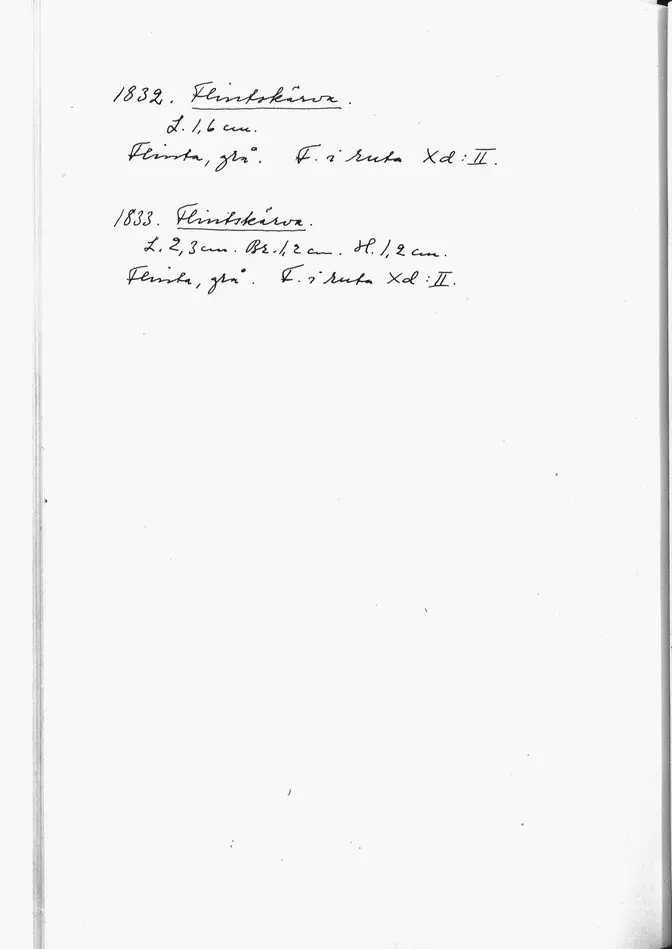 1832. Flintskärva.
L. 1,6 cm.
Flinta, grå. F. i ruta Xd:II.
1833. Flintskärva.
L. 2,3 cm. Br. 1,2 cm. H. 1,2 cm.
Flinta, grå. F. i ruta Xd:II.